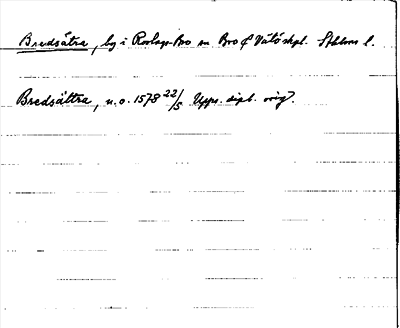 Bredsätra, by i Roslags-Bro sn Bro o Vätö skpl. Sthlms l.
Bredsättra, u.o. 1578 22/5 Upps. dipl. orig.